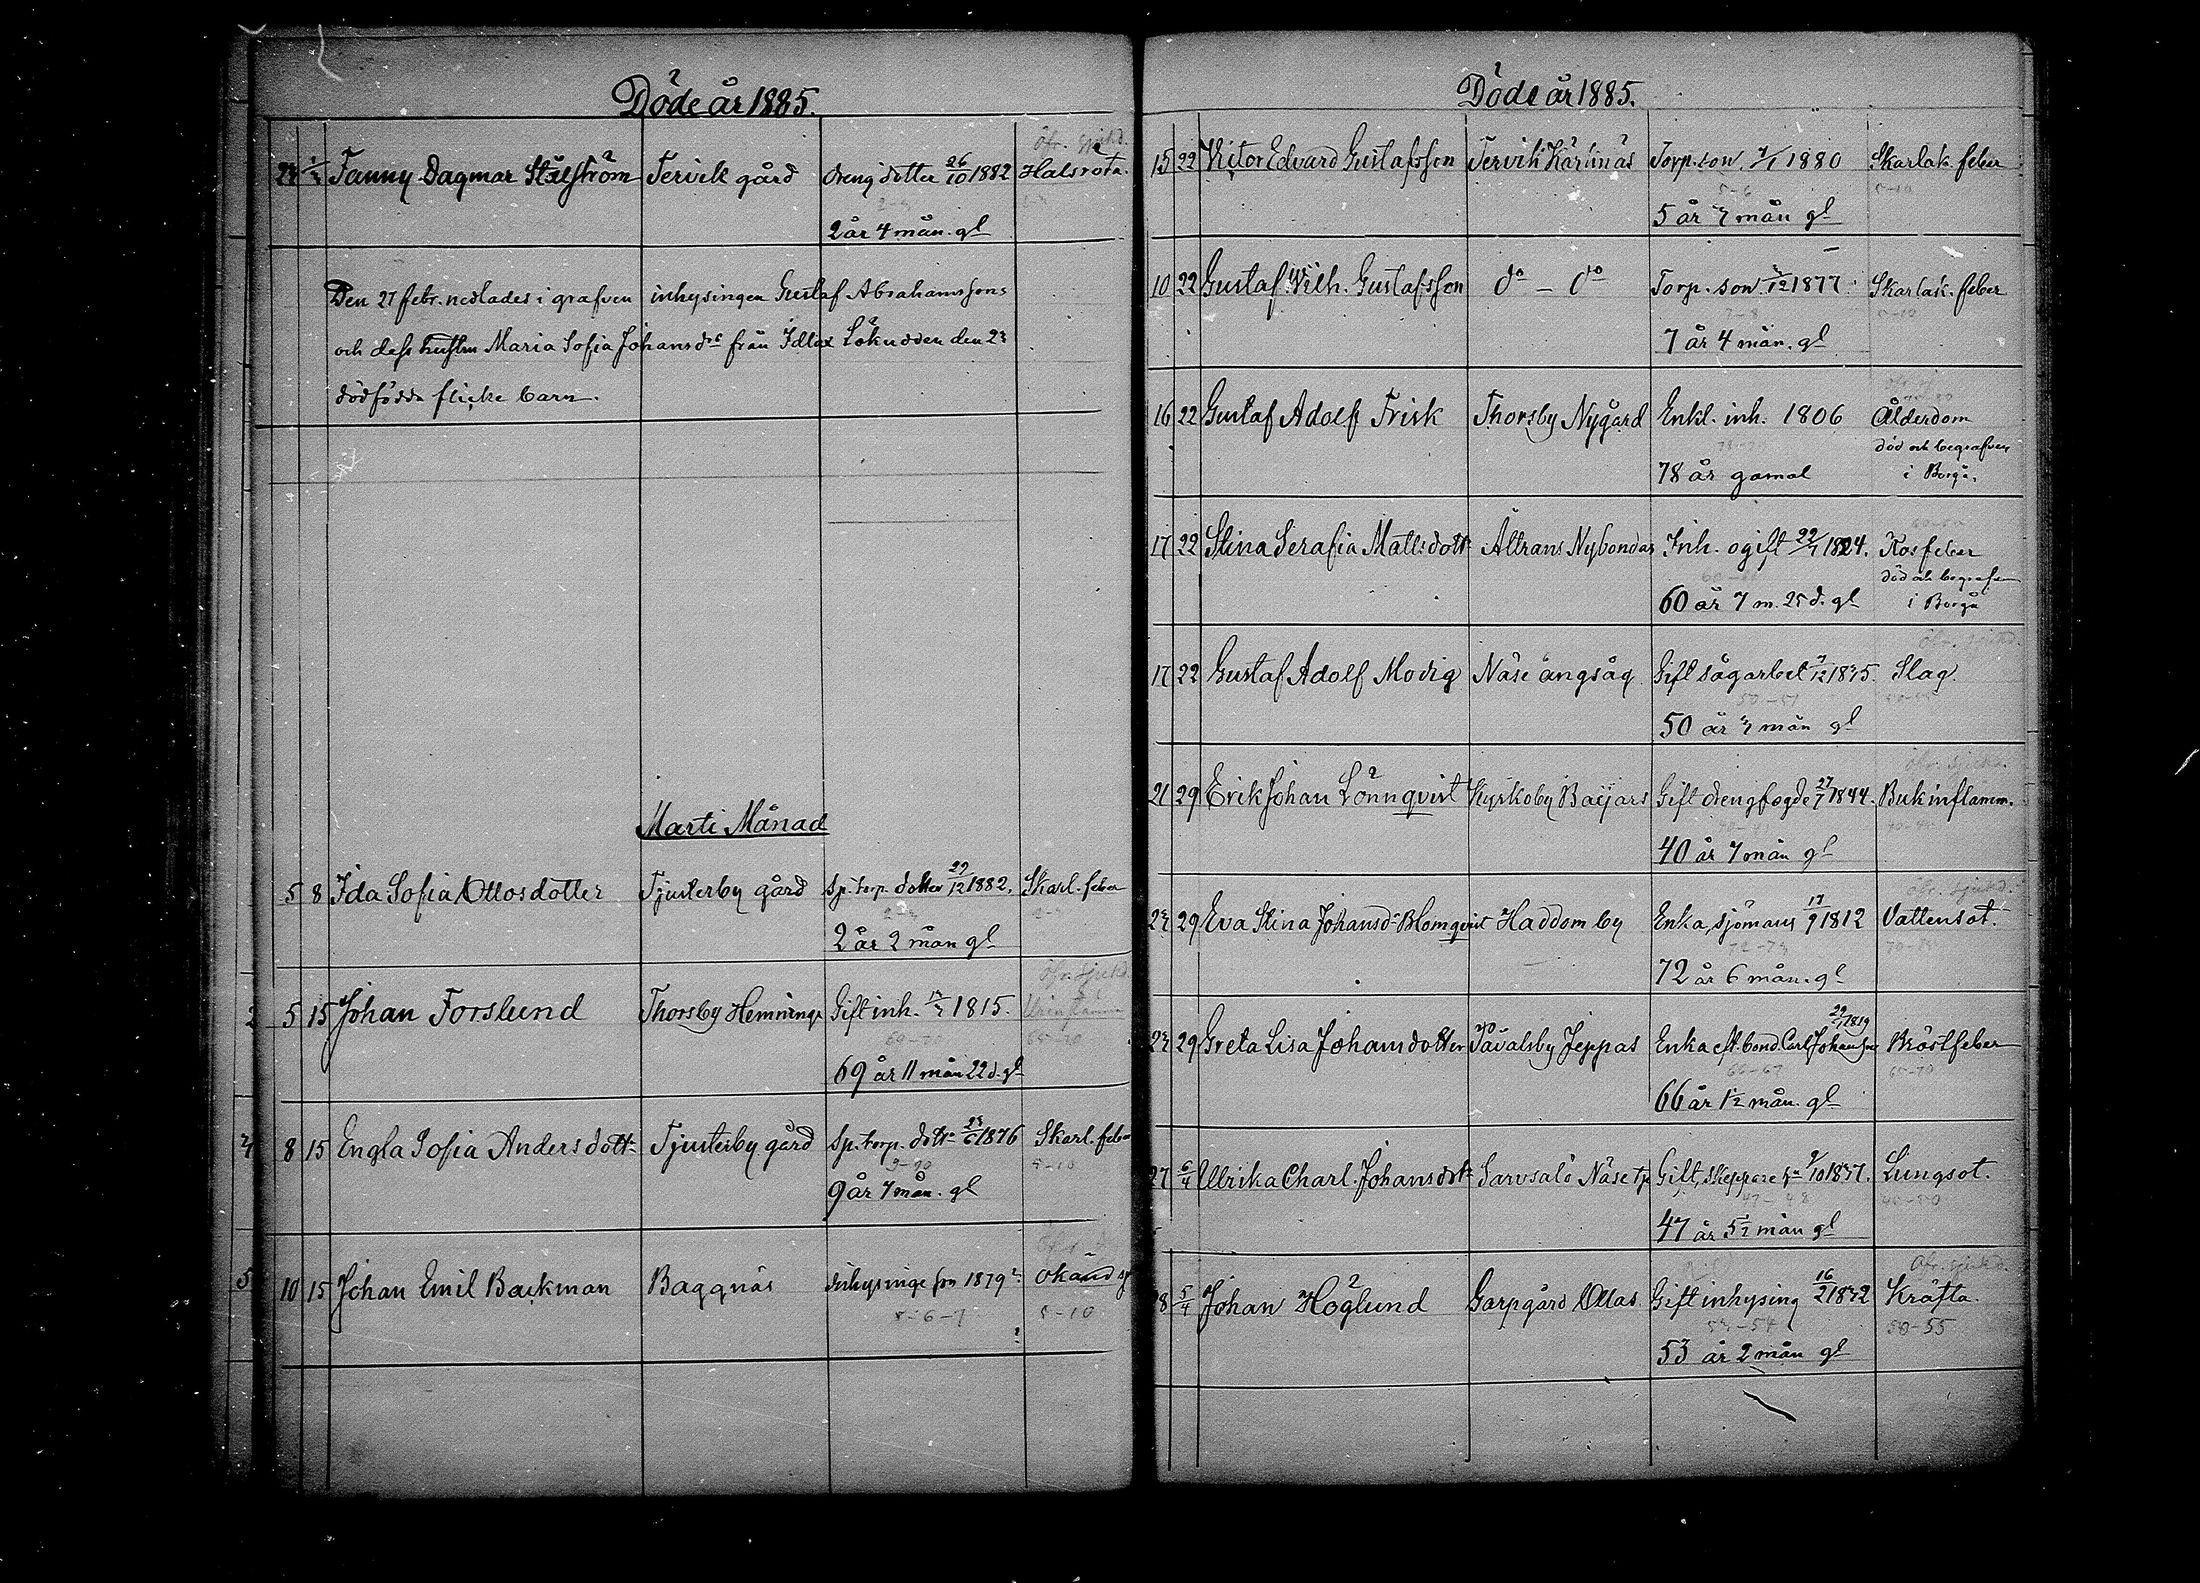 Döde år 1885.
Fanny Dagmar Stålström Tervik gård dreng dotter 26/10 1882 Halsröta.
2 år 4 mån. gl
Den 27 febr. nedlades i grafven inhysingen Gustaf Abrahamssons
och dess hustru Maria Sofia Johansdr från Idlax Löknäs den 23
dödfödda flicke barn.
Marti Månad
5 8 Ida Sofia Ottosdotter Tjusterby gård Sp. torp. dotter 29/12 1882. Skarl. feber
2-3
2 år 2 mån gl
5 15 Johan Forslund Thorsby Hemminge Gift inh. 1815.
69-70 65-70
69 år 11 mån 22 d. gl
8 15 Engla Sofia Andersdott Tjusterby gård Sp. torp. dotr 1876 Skarl. feb
9-10 5-10
9 år 7 mån. gl
10 15 Johan Emil Backman Baggnäs Inhysinge son 1879 okänd sj
5-6-7 5-10
Döde år 1885.
15 22 Victor Edvard Gustafsson Tervik Kärrnäs Torp. son 1880 Skarlak. feber
5-6 5-10
5 år 3 mån gl
10 22 Gustaf Wilh. Gustafsson do - do Torp. son 1877 Skarlak. feber
7-8 5-10
7 år 4 mån. gl
16 22 Gustaf Adolf Frisk Thorsby Nygård Enkl. inh. 1806 Ålderdom
död och begrafven
78 år gamal i Borgå.
17 22 Stina Serafia Mattsdottr Åltrans Nybondas Inh. ogift 22/7 1824. Rosfeber
död och begrafven
60 år 7 m. 25 d. gl i Borgå
17 22 Gustaf Adolf Modig Näse ångsåg Gift sågarbet 1835. Slag.
50-51
50 år 3 mån gl
21 29 Erik Johan Lönnqvist Kyrkoby Baijars Gift drengfogde 27/7 1844. Bukinflamm.
40 år 7 mån gl
23 29 Eva Stina Johansdr Blomqvist Haddom by Enka, sjömans 17/9 1812 Vattensot.
72-73
72 år 6 mån. gl
23 29 Greta Lisa Johansdotter Pävalsby Jeppas Enka eft. bond. Carl Johansson 29/1 1819 Bröstfeber
66-67 65-70
66 år 1½ mån. gl
27 6/4 Ulrika Charl. Johansdotr Sarvsalö Näse Gift, Skeppare 9/10 1837. Lungsot.
47-48 40-50
47 år 5½ mån gl
5/4 Johan Höglund Garpgård Ollas Gift inhysing 16/2 1832 Kräfta.
53-54 50-55
53 år 2 mån gl